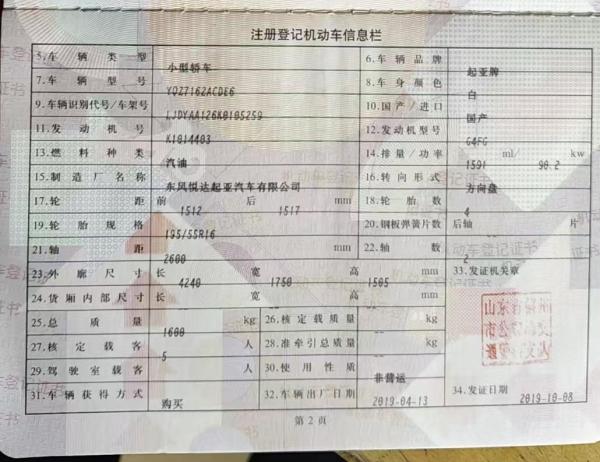 注册登记机动车信息栏
5.车辆类型 小型轿车 6.车辆品牌 起亚牌
7.车辆型号 YQZ7162ACDE6 8.车身颜色 白
9.车辆识别代号/车架号 LJDYAA126K0105259 10.国产/进口 国产
11.发动机号 K1014403 12.发动机型号 G4FG
13.燃料种类 汽油 14.排量/功率 1591 ml/ 90.2 kw
15.制造厂名称 东风悦达起亚汽车有限公司 16.转向形式 方向盘
17.轮距 前 1512 后 1517 mm 18.轮胎数 4
19.轮胎规格 195/55R16 20.钢板弹簧片数 后轴 -- 片
21.轴距 2600 mm 22.轴数 2
23.外廓尺寸 长 4240 宽 1750 高 1505 mm 33.发证机关章
24.货厢内部尺寸 长 -- 宽 -- 高 -- mm
25.总质量 1600 kg 26.核定载质量 -- kg
27.核定载客 5 人 28.准牵引总质量 -- kg
29.驾驶室载客 -- 人 30.使用性质 非营运
31.车辆获得方式 购买 32.车辆出厂日期 2019-04-13 34.发证日期 2019-10-08
第2页